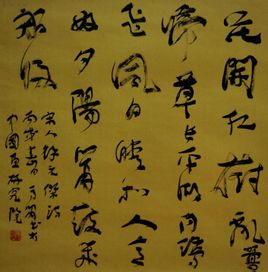 花開红樹亂鶯
啼草长平湖白鷺
飛風日晴和人意
好夕陽簫鼓幾
船归
宋人徐元傑詩
书於
中國画研究院